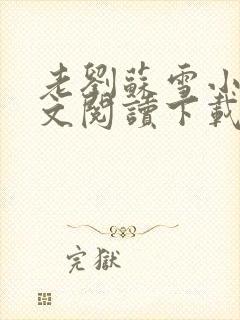 老劉蘇雪小
文閱讀下載
完獄